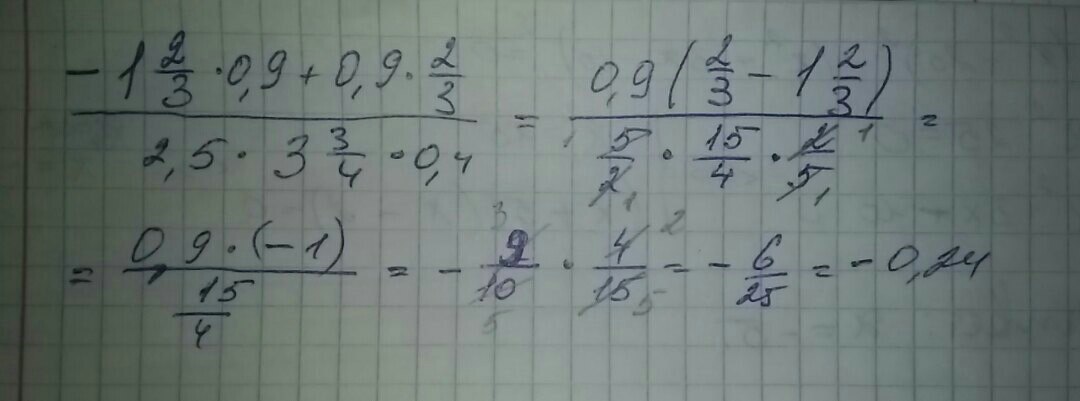 (-1 2/3 · 0,9 + 0,9 · 2/3) / (2,5 · 3 3/4 · 0,4) = 0,9 (2/3 - 1 2/3) / (5/2 · 15/4 · 2/5) =
= 0,9 · (-1) / (15/4) = - 9/10 · 4/15 = - 6/25 = - 0,24